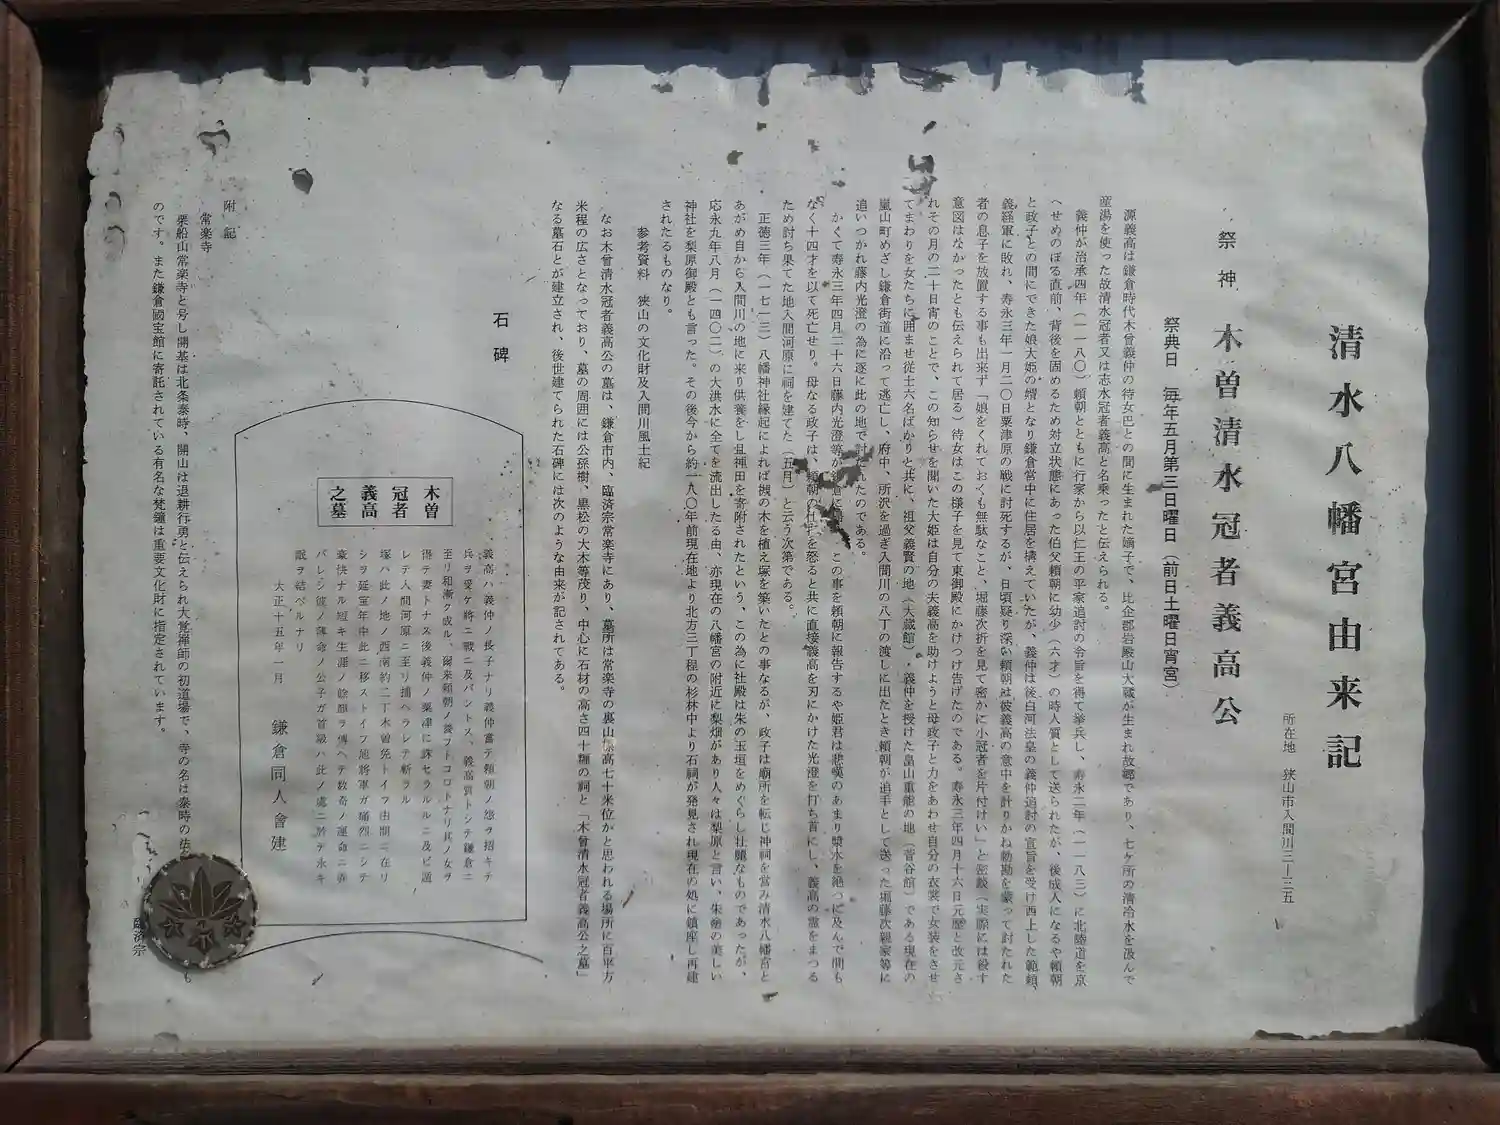 清水八幡宮由来記
所在地 狭山市入間川三ー三五
祭神 木曽清水冠者義高公
祭典日 毎年五月第三日曜日(前日土曜日宵宮)
源義高は鎌倉時代木曽義仲の待女巴との間に生まれた嫡子で、比企郡岩殿山大蔵が生まれ故郷であり、七ヶ所の清冷水を汲んで
産湯を使った故清水冠者又は志水冠者義高と名乗ったと伝えられる。
義仲が治承四年(一一八〇)頼朝とともに行家から以仁王の平家追討の令旨を得て挙兵し、寿永二年(一一八三)に北陸道を京
へせめのぼる直前、背後を固めるため対立状態にあった伯父頼朝に幼少(六才)の時人質として送られたが、後成人になるや頼朝
と政子との間にできた娘大姫の婿となり鎌倉営中に住居を構えていたが、義仲は後白河法皇の義仲追討の宣旨を受け西上した範頼、
義経軍に敗れ、寿永三年一月二〇日粟津原の戦に討死するが、日頃疑り深い頼朝は彼義高の意中を計りかね勘を蒙って討たれた
者の息子を放置する事も出来ず「娘をくれておくも無駄なこと、堀藤次折を見て密かに小冠者を片付けい」と密談(実際には殺す
意図はなかったとも伝えられて居る)待女はこの様子を見て東御殿にかけつけ告げたのである。寿永三年四月十六日元歴と改元さ
れその月の二十日宵のことで、この知らせを聞いた大姫は自分の夫義高を助けようと母政子と力をあわせ自分の衣裳で女装をさせ
てまわりを女たちに囲ませ従士六名ばかりと共に、祖父義賢の地(大蔵館)・義仲を授けた畠山重能の地(菅谷館)である現在の
嵐山町めざし鎌倉街道に沿って逃亡し、府中、所沢を過ぎ入間川の八丁の渡しに出たとき頼朝が追手として送った堀藤次親家等に
追いつかれ藤内光澄の為に遂に此の地で討たれたのである。
かくて寿永三年四月二十六日藤内光澄等が鎌倉に この事を頼朝に報告するや姫君は悲嘆のあまり漿水を絶つに及んで間も
なく十四才を以て死亡せり。母なる政子は、頼朝の仕打を怒ると共に直接義高を刃にかけた光澄を打ち首にし、義高の霊をまつる
ため討ち果てた地入間河原に祠を建てた(五月)と云う次第である。
正徳三年(一七一三)八幡神社縁起によれば槻の木を植え塚を築いたとの事なるが、政子は廟所を転じ神祠を営み清水八幡宮と
あがめ自から入間川の地に来り供養をし且神田を寄附されたという、この為に社殿は朱の玉垣をめぐらし壮麗なものであったが、
応永九年八月(一四〇二)の大洪水に全てを流出したる由、亦現在の八幡宮の附近に梨畑があり人々は梨原と言い、朱塗の美しい
神社を梨原御殿とも言った。その後今から約一八〇年前現在地より北方三丁程の杉林中より石祠が発見され現在の処に鎮座し再建
されたるものなり。
参考資料 狭山の文化財及入間川風土紀
なお木曽清水冠者義高公の墓は、鎌倉市内、臨済宗常楽寺にあり、墓所は常楽寺の裏山標高七十米位かと思われる場所に百平方
米程の広さとなっており、墓の周囲には公孫樹、黒松の大木等茂り、中心に石材の高さ四十糎の祠と「木曽清水冠者義高公之墓」
なる墓石とが建立され、後世建てられた石碑には次のような由来が記されてある。
石碑
木曽
冠者
義高
之墓
義高ハ義仲ノ長子ナリ義仲嘗テ頼朝ノ怨ヲ招キテ
兵ヲ受ケ將ニ戰ニ及バントス、義高質トシテ鎌倉ニ
至リ和漸ク成ル、爾来頼朝ノ養フトコロトナリ其ノ女ヲ
得テ妻トナス後義仲ノ粟津ニ誅セラルルニ及ビ遁
レテ入間河原ニ至リ捕ヘラレテ斬ラル
塚ハ此ノ地ノ西南約二丁木曽免トイフ由間ニ在リ
シヲ延宝年中此ニ移ストイフ旭將軍ガ痛烈ニシテ
豪快ナル短キ生涯ノ餘韻ヲ傳ヘテ数奇ノ運命ニ弄
バレシ彼ノ薄命ノ公子ガ首級ハ此ノ處ニ於テ永キ
眠ヲ結ベルナリ
大正十五年一月 鎌倉同人會建
附記
常楽寺
粟船山常楽寺と号し開基は北条泰時、開山は退耕行勇と伝えられ大覚禅師の初道場で、寺の名は泰時の法 も
のです。また鎌倉國宝館に寄託されている有名な梵鐘は重要文化財に指定されています。
臨済宗